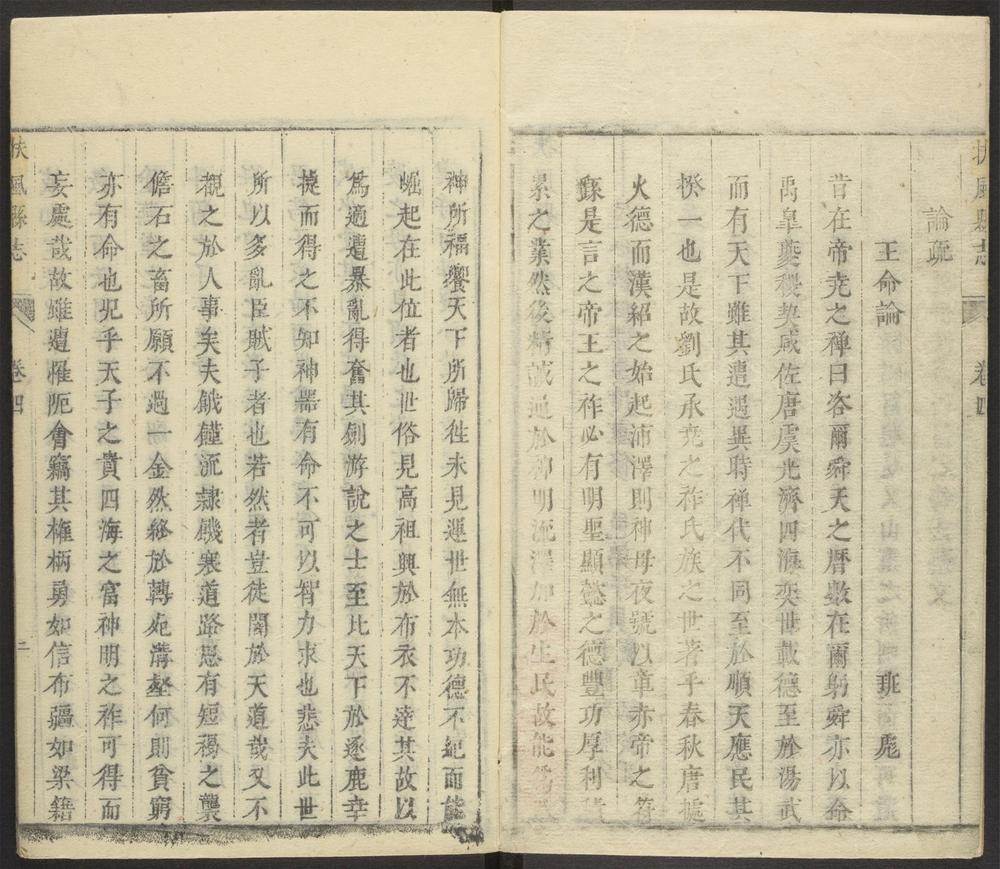 扶風縣志 卷四
論疏
王命論 班彪
昔在帝堯之禪曰咨爾舜天之曆數在爾躬舜亦以命
禹臯夔稷契咸佐唐虞光濟四海奕世載德至於湯武
而有天下雖其遭遇異時禪代不同至於順天應民其
揆一也是故劉氏承堯之祚氏族之世著乎春秋唐據
火德而漢紹之始起沛澤則神母夜號以章赤帝之符
繇是言之帝王之祚必有明聖顯懿之德豐功厚利
累之業然後精誠通於神明流澤加於生民故能爲
神所福饗天下所歸徃未見運世無本功德不紀而能
崛起在此位者也世俗見高祖興於布衣不達其故以
爲適遭暴亂得奮其劍游說之士至比天下於逐鹿幸
㨗而得之不知神器有命不可以智力求也悲夫此世
所以多亂臣賊子者也若然者豈徒闇於天道哉又不
覩之於人事矣夫餓饉流隷饑寒道路思有短褐之襲
儋石之畜所願不過一金然終於轉死溝壑何則貧窮
亦有命也况乎天子之貴四海之富神明之祚可得而
妄處哉故雖遭罹阨會竊其權柄勇如信布疆如梁籍
扶風縣志 卷四 二